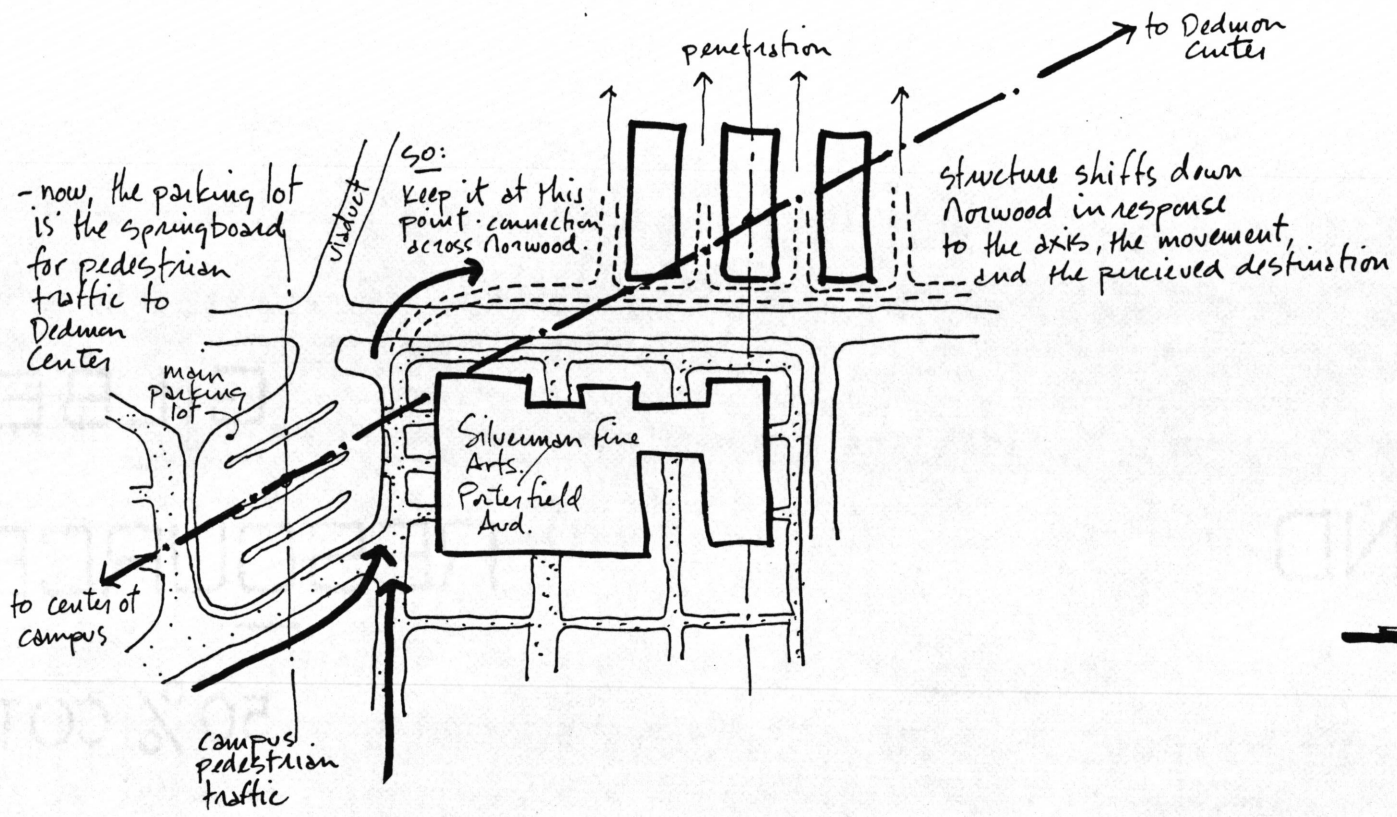 to Dedmon
Center
penetration
- now, the parking lot
is the springboard
for pedestrian
traffic to
Dedmon
Center
viaduct
SO:
Keep it at this
point. connection
across Norwood.
structure shifts down
Norwood in response
to the axis, the movement,
and the percieved destination
main
parking
lot
Silverman Fine
Arts/
Porterfield
Aud.
to center of
campus
campus
pedestrian
traffic
50% COT